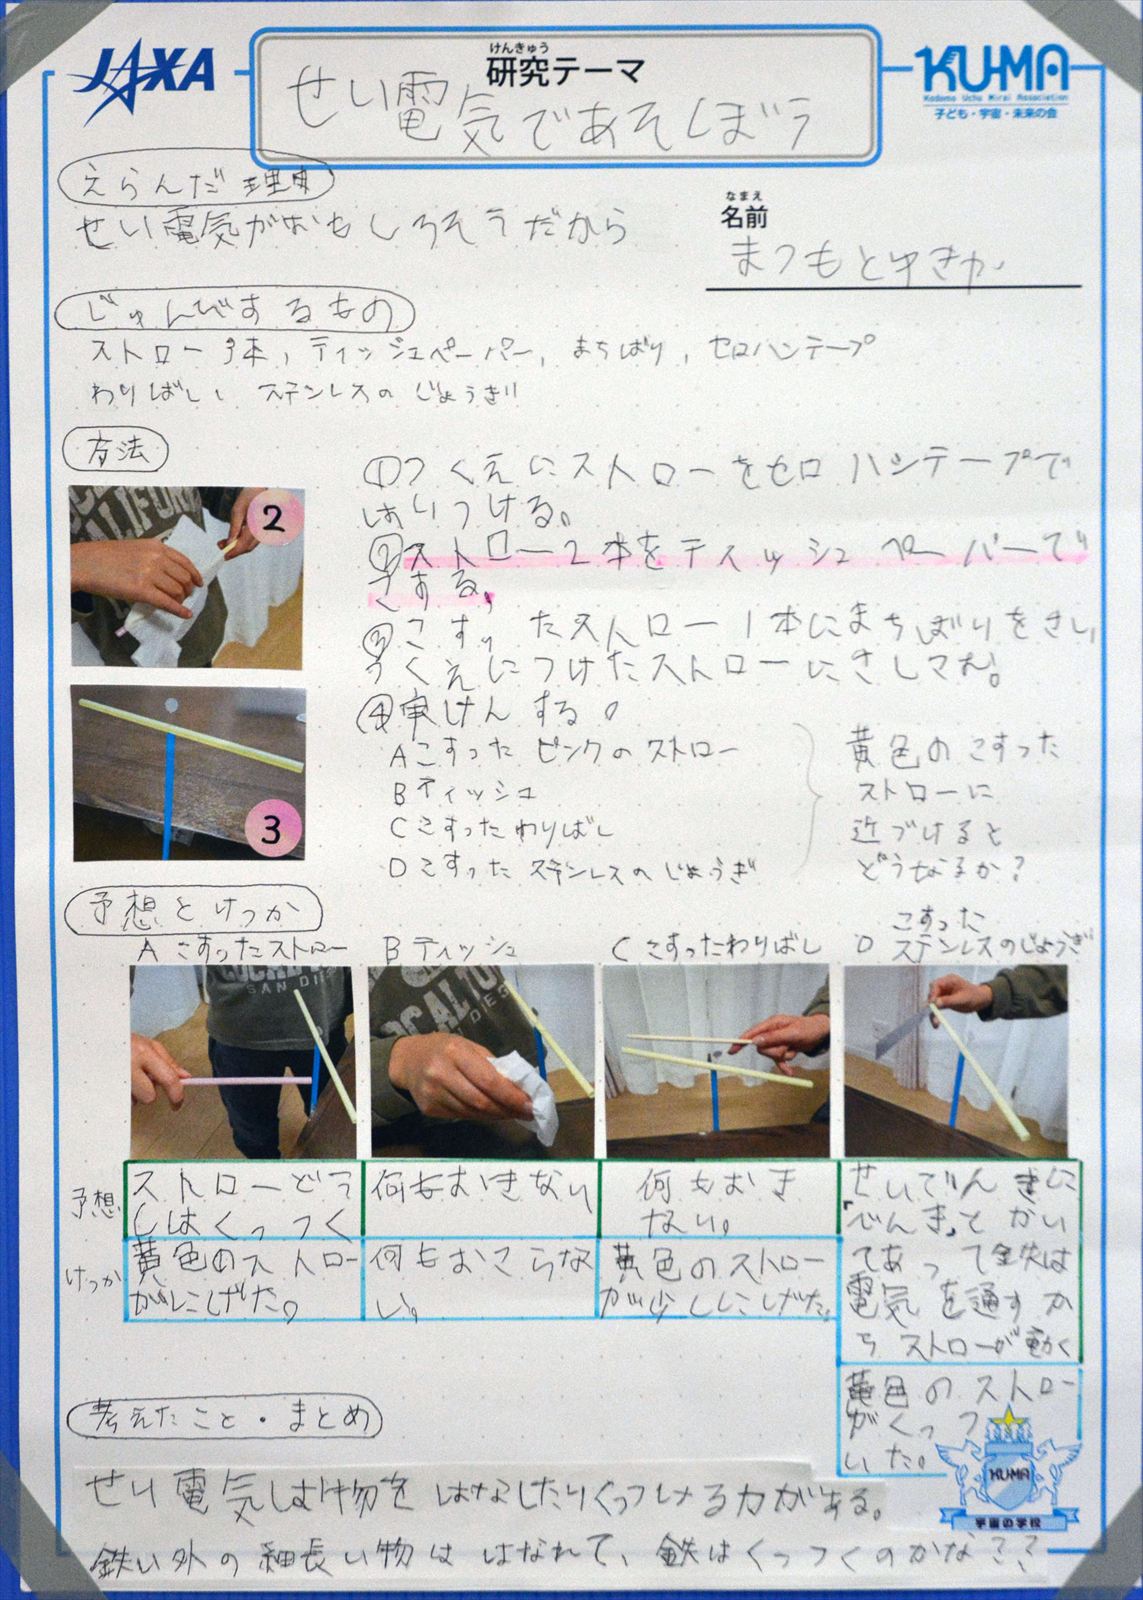 JAXA
けんきゅう
研究テーマ
せい電気であそしぼう
KU-MA
Kodomo Uchu Mirai Association
子ども・宇宙・未来の会
えらんだ理由
せい電気がおもしろそうだから
なまえ
名前
まつもとゆきか
じゅんびするもの
ストロー3本，ティッシュペーパー，まちばり，セロハンテープ
わりばし、ステンレスのじょうぎ
方法
①つくえにストローをセロハンテープで
はりつける。
②ストロー2本をティッシュペーパーで
こする。
③こすったストロー1本にまちばりをさし
つくえにつけたストローにさしこむ。
④実けんする。
Aこすったピンクのストロー
Bティッシュ
Cこすったわりばし
Dこすったステンレスのじょうぎ
黄色のこすった
ストローに
近づけると
どうなるか？
2
3
予想とけっか
Aこすったストロー
Bティッシュ
Cこすったわりばし
Dこすった
ステンレスのじょうぎ
SAN DI
予想
ストローどう
しはくっつく
何もおきない
何もおき
ない。
せいでんきに
「でんき」とかい
てあって鉄は
電気を通すか
らストローが動く
けっか
黄色のストロー
がにげた。
何もおこらな
い。
黄色のストロー
が少しにげた。
黄色のストロー
がくっつ
いた。
考えたこと・まとめ
せい電気は物をはなしたりくっつける力がある。
鉄い外の細長い物ははなれて、鉄はくっつくのかな？？
KU-MA
宇宙の学校